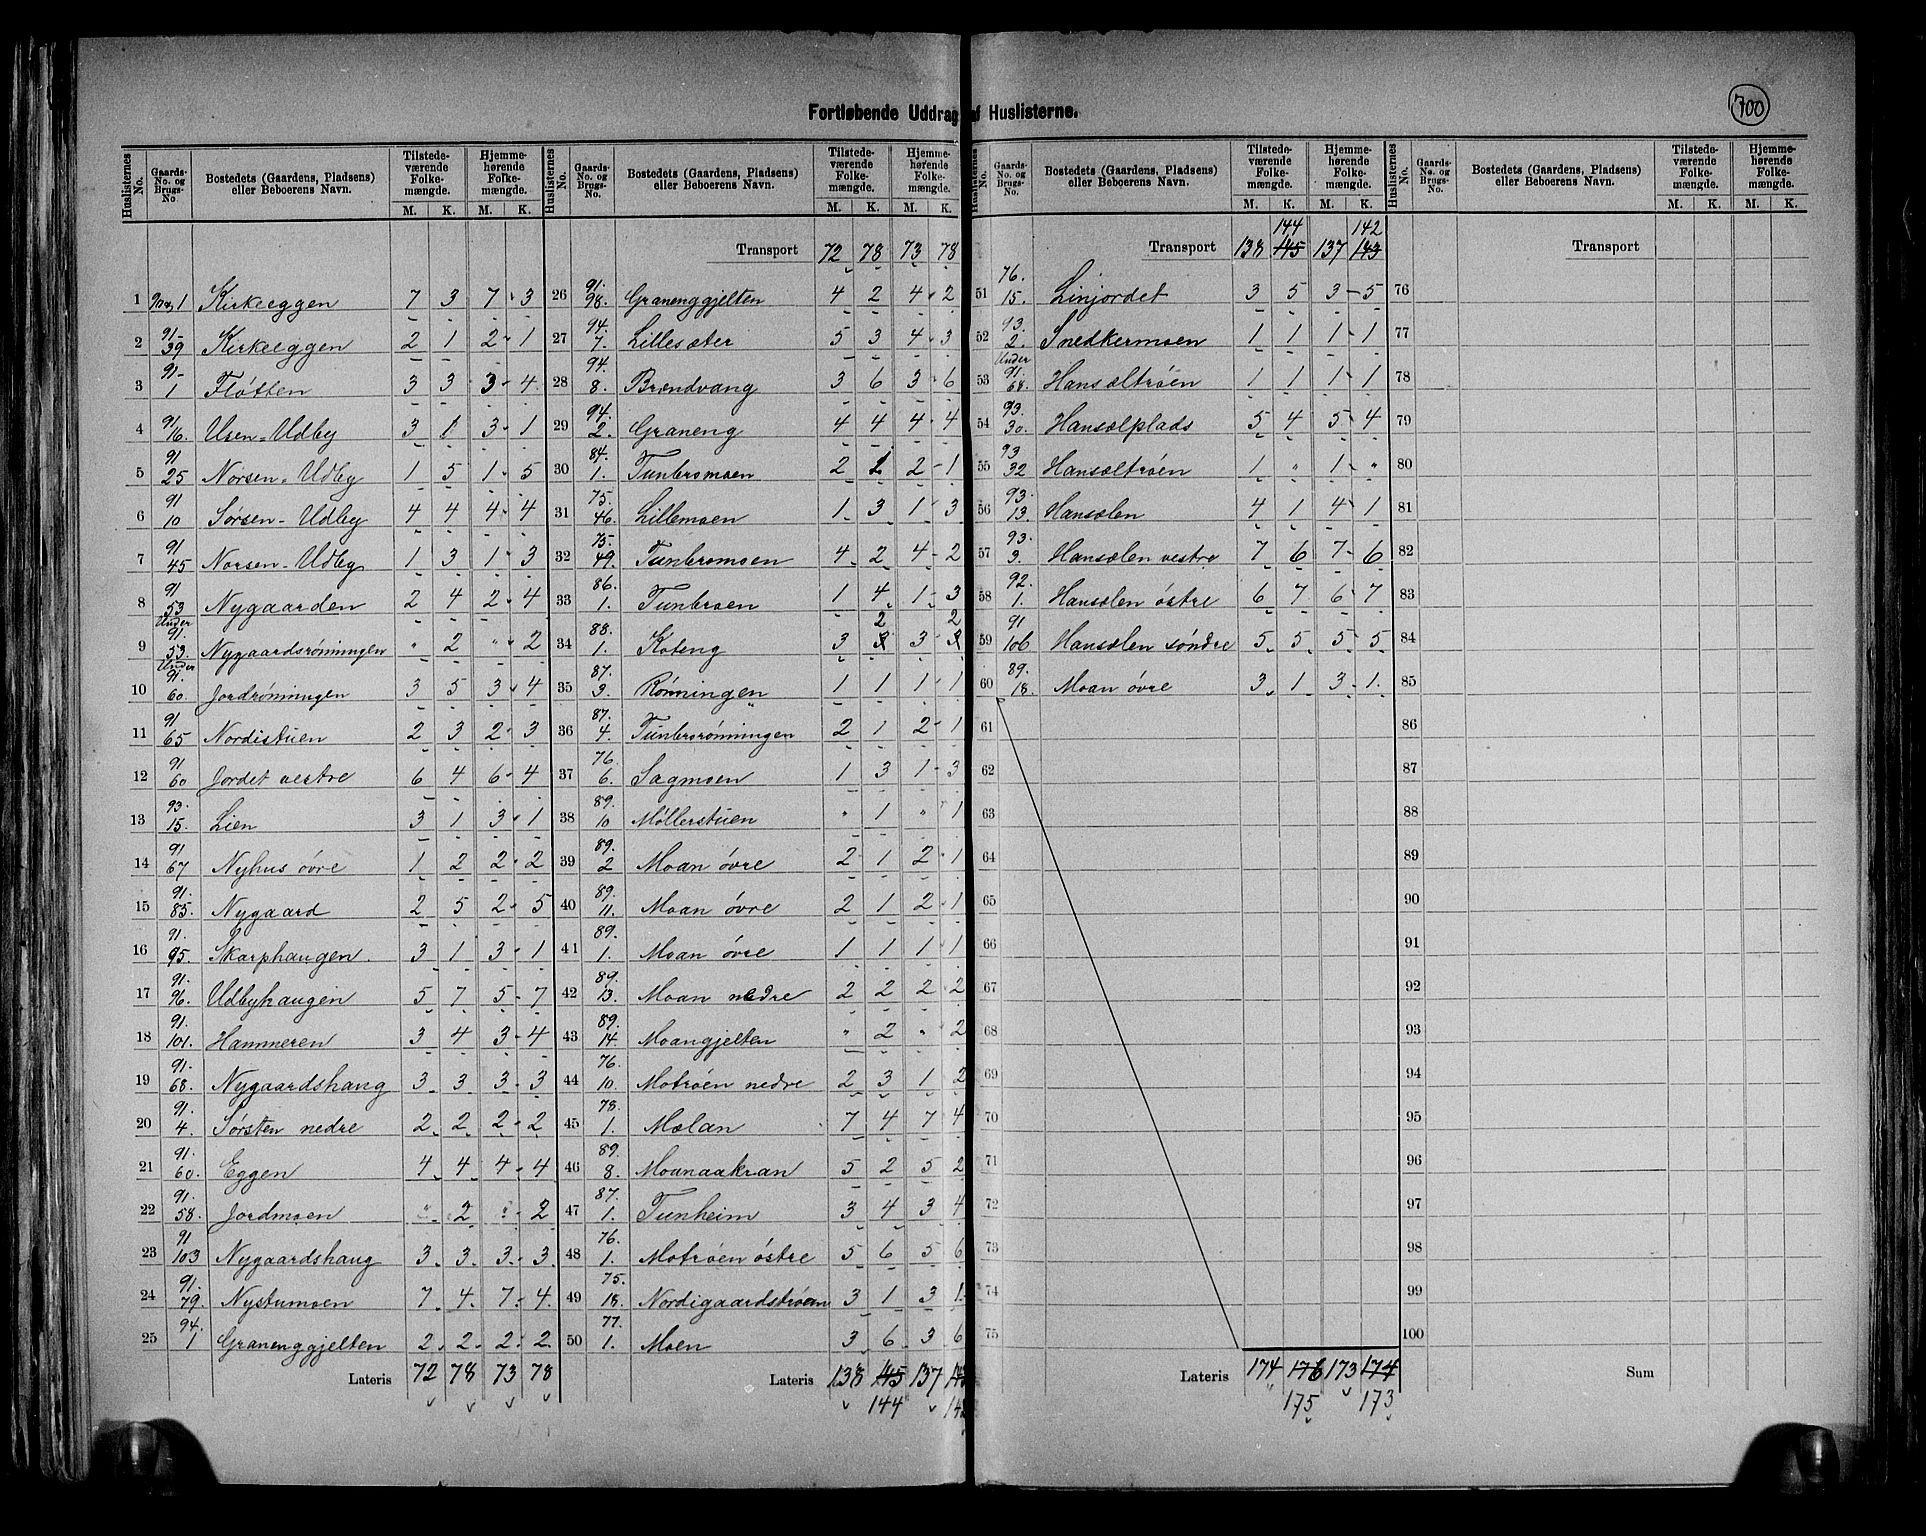 700
Fortløbende Uddrag af Huslisterne.
Huslisternes No. | Gaards-No. og Brugs-No. | Bostedets (Gaardens, Pladsens) eller Beboerens Navn. | Tilstedeværende Folkemængde. M. K. | Hjemmehørende Folkemængde. M. K.
1 1 Kirkeeggen 7 3 7 3
2 91-39 Kirkeeggen 2 1 2 1
3 91-1 Fløtten 3 3 3 4
4 91 16. Usen-Udby 3 1 3 1
5 91 25 Norsen-Udby 1 5 1 5
6 91 10 Sørsen-Udby 4 4 4 4
7 91 45 Norsen-Udby 1 3 1 3
8 91 53 Nygaarden 2 4 2 4
9 Under 91. 53. Nygaardsrønningen " 2 " 2
10 Under 91. 60. Jordrønningen 3 5 3 4
11 91 65 Nordistuen 2 3 2 3
12 91 60 Jordet vestre 6 4 6 4
13 93. 15. Lien 3 1 3 1
14 91 67 Nyhus övre 1 2 2 2
15 91. 85. Nygaard 2 5 2 5
16 91. 95. Skarphaugen. 3 1 3 1
17 91. 96. Udbyhaugen 5 7 5 7
18 91. 101. Hammeren 3 4 3 4
19 91. 68. Nygaardshaug 3 3 3 3
20 91. 4. Sørsten nedre 2 2 2 2
21 91. 60. Eggen 4 4 4 4
22 91. 58. Jordmoen " 2 " 2
23 91 103 Nygaardshaug 3 3 3 3
24 91. 79. Nystumoen 7 4 7 4
25 94. 1 Granenggjelten 2 2 2 2
Lateris 72 78 73 78
Transport 72 78 73 78
26 91. 98. Granenggjelten 4 2 4 2
27 94. 7. Lillesæter 5 3 4 3
28 94. 8. Brendvang 3 6 3 6
29 94. 2. Graneng 4 4 4 4
30 84. 1. Tunbromoen 2 2 1
31 75. 46. Lillemoen 1 3 1 3
32 75. 49. Tunbromoen 4 2 4 2
33 86. 1. Tunbroen 1 4 1 3
34 88. 1. Koteng 3 2 3 2
35 87. 3. Rønningen 1 1 1 1
36 87. 4. Tunbrorønningen 2 1 2 1
37 76. 6. Sagmoen 1 3 1 3
38 89. 10 Møllerstuen " 1 " 1
39 89. 2 Moan övre 2 1 2 1
40 89. 11. Moan övre 2 1 2 1
41 89. 1. Moan övre 1 1 1 1
42 89. 13. Moan nedre 2 2 2 2
43 89. 14. Moangjelten " 2 " 2
44 76. 10. Motrøen nedre 2 3 1 2
45 78. 1. Mælan 7 4 7 4
46 89. 8. Moanaakran 5 2 5 2
47 87. 1. Tunheim 3 4 3 4
48 76. 1. Motrøen østre 5 6 5 6
49 75. 18. Nordigaardstrøen 3 1 3 1
50 77. 1. Moen 3 6 3 6
Lateris 138 145 137 143
144 142
144 142
Transport 138 145 137 143
51 76. 15. Linjordet 3 5 3 5
52 93. 2. Snedkermoen 1 1 1 1
53 Under 91. 68. Hansæltrøen 1 1 1 1
54 93. 30. Hansælplads 5 4 5 4
55 93 32 Hansæltrøen 1 " 1 "
56 93. 13. Hansælen 4 1 4 1
57 93. 3. Hansælen vestre 7 6 7 6
58 92. 1. Hansælen östre 6 7 6 7
59 91 106 Hansælen söndre 5 5 5 5
60 89. 18. Moan övre 3 1 3 1
61
62
63
64
65
66
67
68
69
70
71
72
73
74
75
Lateris 174 176 173 174
175 173
Transport
76
77
78
79
80
81
82
83
84
85
86
87
88
89
90
91
92
93
94
95
96
97
98
99
100
Sum